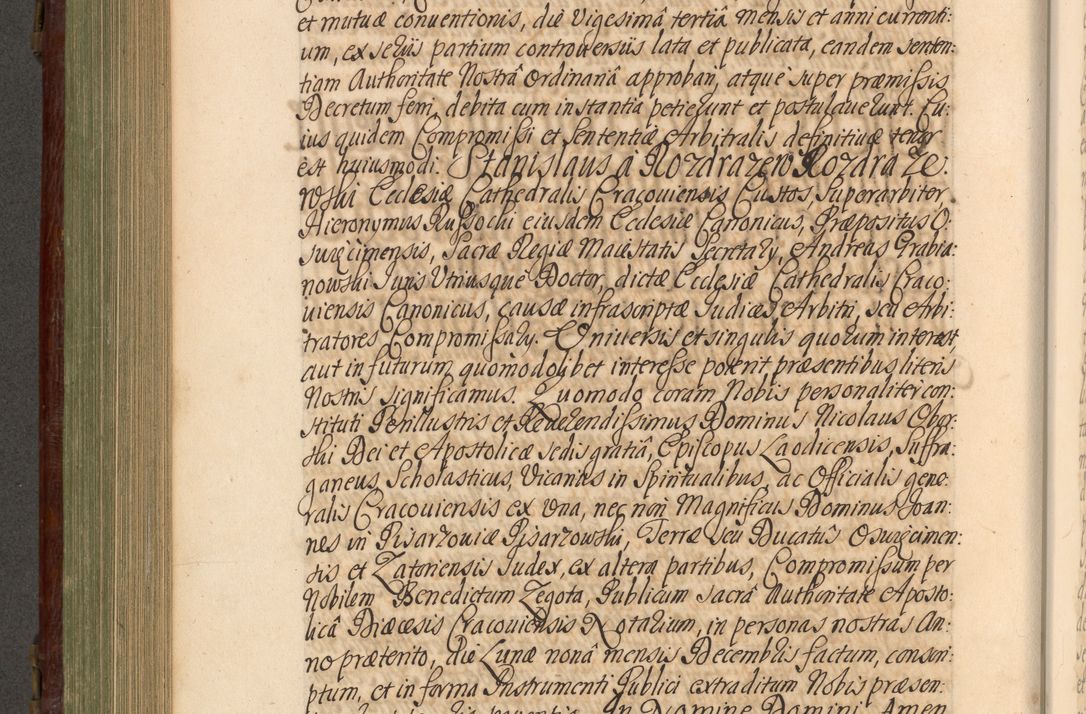 et mutuæ conventionis, die Vigesimâ tertiâ mensis et anni currenti:
um, ex seriis partium controversiis lata et publicata, eandem senten:
tiam Authoritate Nostrâ Ordinariâ approbari, atque super præmissis
Decretum feri, debita cum instantiâ petierunt et postulaverunt. Cu:
ius quidem Compromissi et Sententiæ Arbitralis definitivæ tenor
est huiusmodi. Stanislaus à Rozdrazew Rozdraze:
wski Ecclesiæ Cathedralis Cracoviensis Custos, Superarbiter,
Hieronymus Russochi eiusdem Ecclesiæ Canonicus, Præpositus O:
surgcimensis, Sacræ Regiæ Maiestatis Secretary, Andreas Grabia:
nowski Juris Utriusque Doctor, dictæ Ecclesiæ Cathedralis Craco:
viensis Canonicus, causæ infrascriptæ Judices, Arbitri, seu Arbi:
tratores Compromissary. Universis et singulis quorum interest
aut in futurum quomodolibet interesse poterit præsentibus literis
Nostris significamus. Quomodo coram Nobis personaliter con:
stituti Perillustris et Reverendissimus Dominus Nicolaus Obor:
ski Dei et Apostolicæ sedis gratiâ, Episcopus Laodicensis, Suffra:
ganeus, Scholasticus, Vicarius in Spiritualibus, ac Officialis gene:
ralis Cracoviensis ex una, nec non Magnificus Dominus Joan:
nes in Pisarzoviæ Pisarzowski, Terræ seu Ducatûs Osurgcimen:
sis et Zatoriensis Judex, ex altera partibus, Compromissum per
Nobilem Benedictum Zegota, Publicum sacrâ Authoritate Aposto:
licâ Diæcesis Cracoviensis Notarium, in personas nostras An:
no præterito, die Lunæ nonâ mensis Decembris factum, conscri:
ptum, et in forma Instrumenti Publici extraditum Nobis præsen:
In Nomine Domini Amen